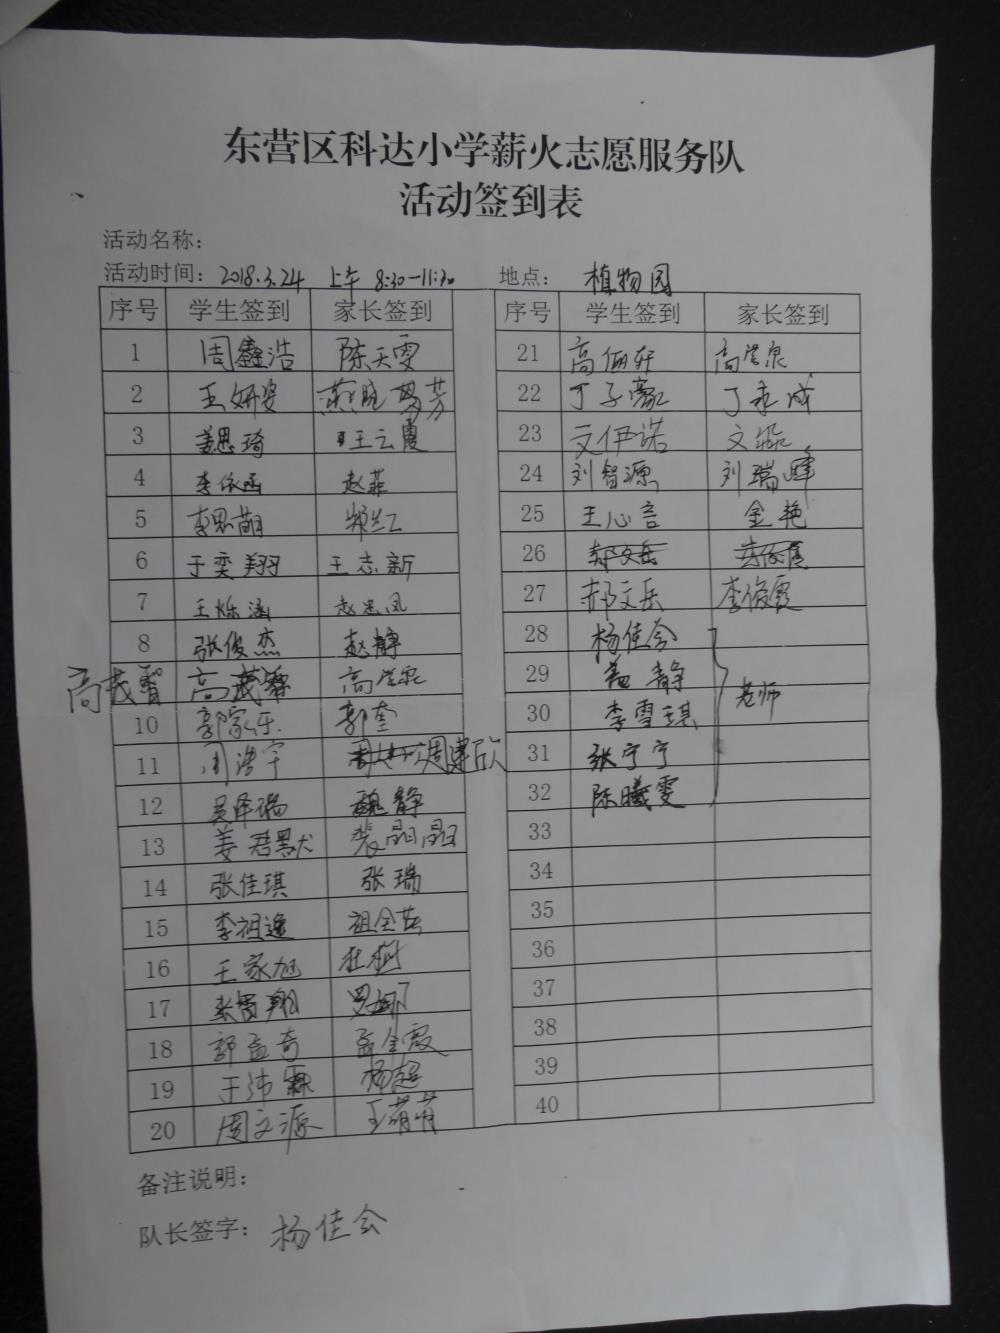 东营区科达小学薪火志愿服务队
活动签到表
活动名称：
活动时间：2018.3.24 上午 8:30—11:30 地点： 植物园
序号 学生签到 家长签到
1 周鑫浩 陈天雯
2 王妍姿
3 姜思琦 王云霞
4 李依函 赵菲
5 李思萌 郑红
6 于奕翔 王志新
7 王烁涵 赵忠凤
8 张俊杰 赵静
高茂智
10 郭家乐 郭奎
11 周浩宇 周建欣
12 吴泽瑞 魏静
13 姜君默 裴晶晶
14 张佳琪 张瑞
15 李祖逸 祖全英
16 王家旭 杜树
17 罗娜
18 郭孟奇 孟金霞
19 王沛霖 杨超
20 周文源 王萌萌
序号 学生签到 家长签到
21 高俪轩
22 丁子豪 丁永成
23 文伊诺 文淼
24 刘智源 刘瑞峰
25 王心言 金艳
26
27 郝文岳 李俊霞
28 杨佳会
29 孟静
30 李雪琪
31 张宁宁
32 陈曦雯
老师
33
34
35
36
37
38
39
40
备注说明：
队长签字： 杨佳会